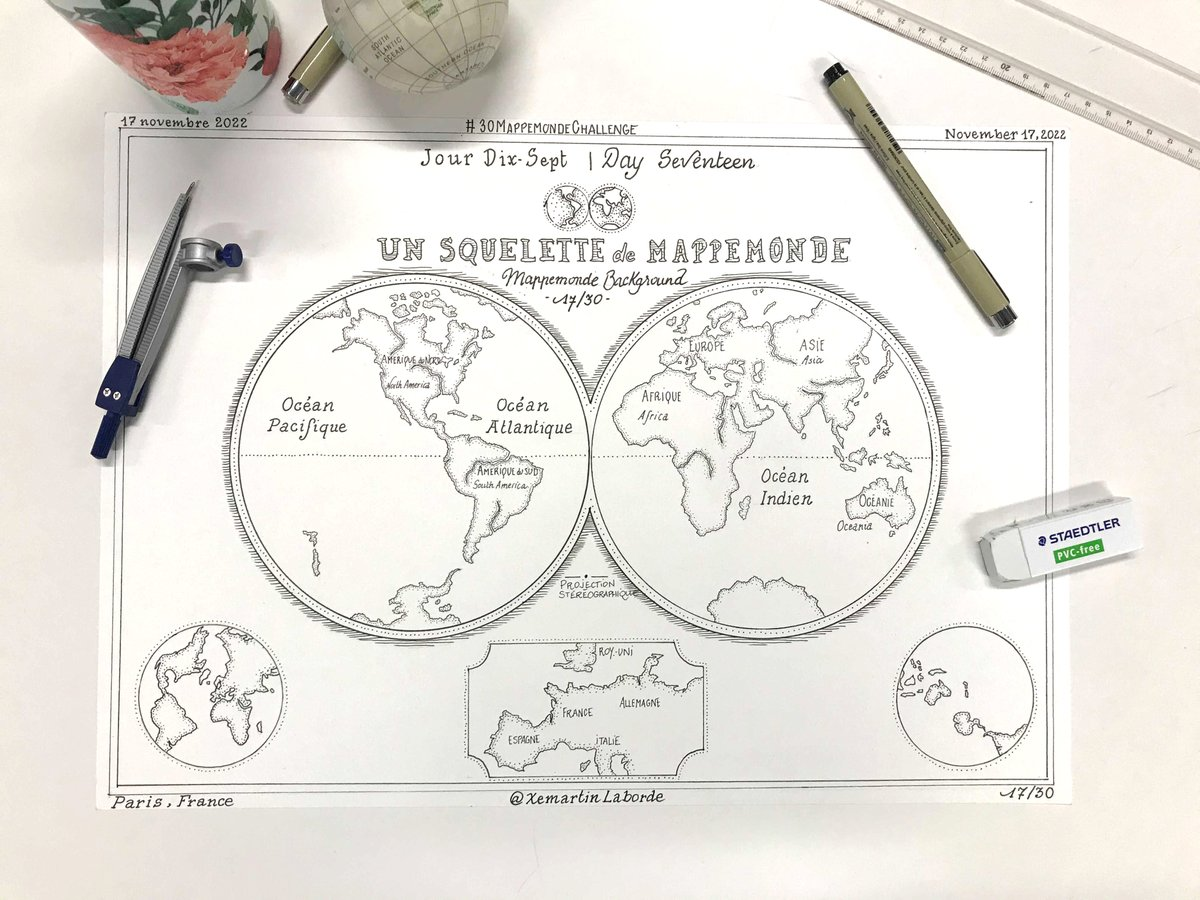 SOUTH
ATLANTIC
OCEAN
SOUTHERN OCEAN
17 novembre 2022
#30MAPPEMONDECHALLENGE
November 17, 2022
Jour Dix-Sept | Day Seventeen
UN SQUELETTE de MAPPEMONDE
Mappemonde Background
-17/30-
AMERIQUE du NORD
North America
Océan
Pacifique
Océan
Atlantique
AMERIQUE du SUD
South America
EUROPE
ASIE
Asia
AFRIQUE
Africa
Océan
Indien
OCÉANIE
Oceania
PROJECTION
STÉRÉOGRAPHIQUE
ROY.-UNI
FRANCE
ALLEMAGNE
ESPAGNE
ITALIE
STAEDTLER
PVC-free
Paris, France
@XemartinLaborde
17/30